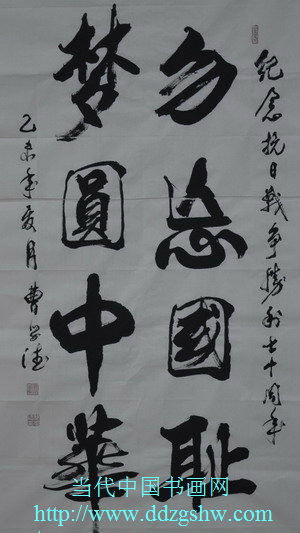 纪念抗日戰争勝利七十周年
勿忘國耻
梦圓中華
乙未年夏月 曹学
当代中国书画网
http://www.ddzgshw.com